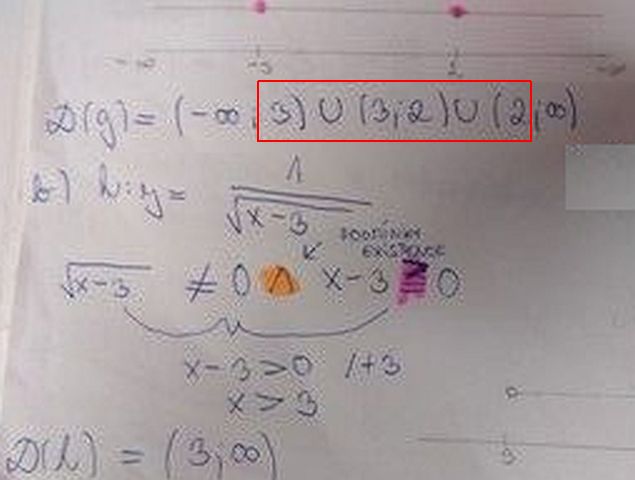 -∞ -3 2 ∞
D(g) = (-∞; 3) ∪ (3; 2) ∪ (2; ∞)
b) h: y = 1/√(x-3)
PODMÍNKY
EXISTENCE
√(x-3) ≠ 0 ∧ x-3 ≥ 0
x-3 > 0 /+3
x > 3
3
D(h) = (3; ∞)